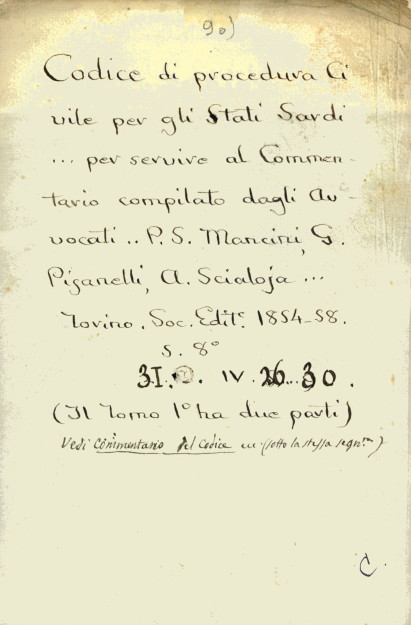 90)
Codice di procedura Ci
vile per gli Stati Sardi
... per servire al Commen-
tario compilato dagli Av-
vocati .. P. S. Mancini, G.
Pisanelli, A. Scialoja ...
Torino. Soc. Editᵉ. 1854-58.
5. 8°
31. . IV. 26. 30.
(Il Tomo 1° ha due parti)
Vedi Commentario del Codice ecc. (sotto la stessa segnʳᵃ)
C.